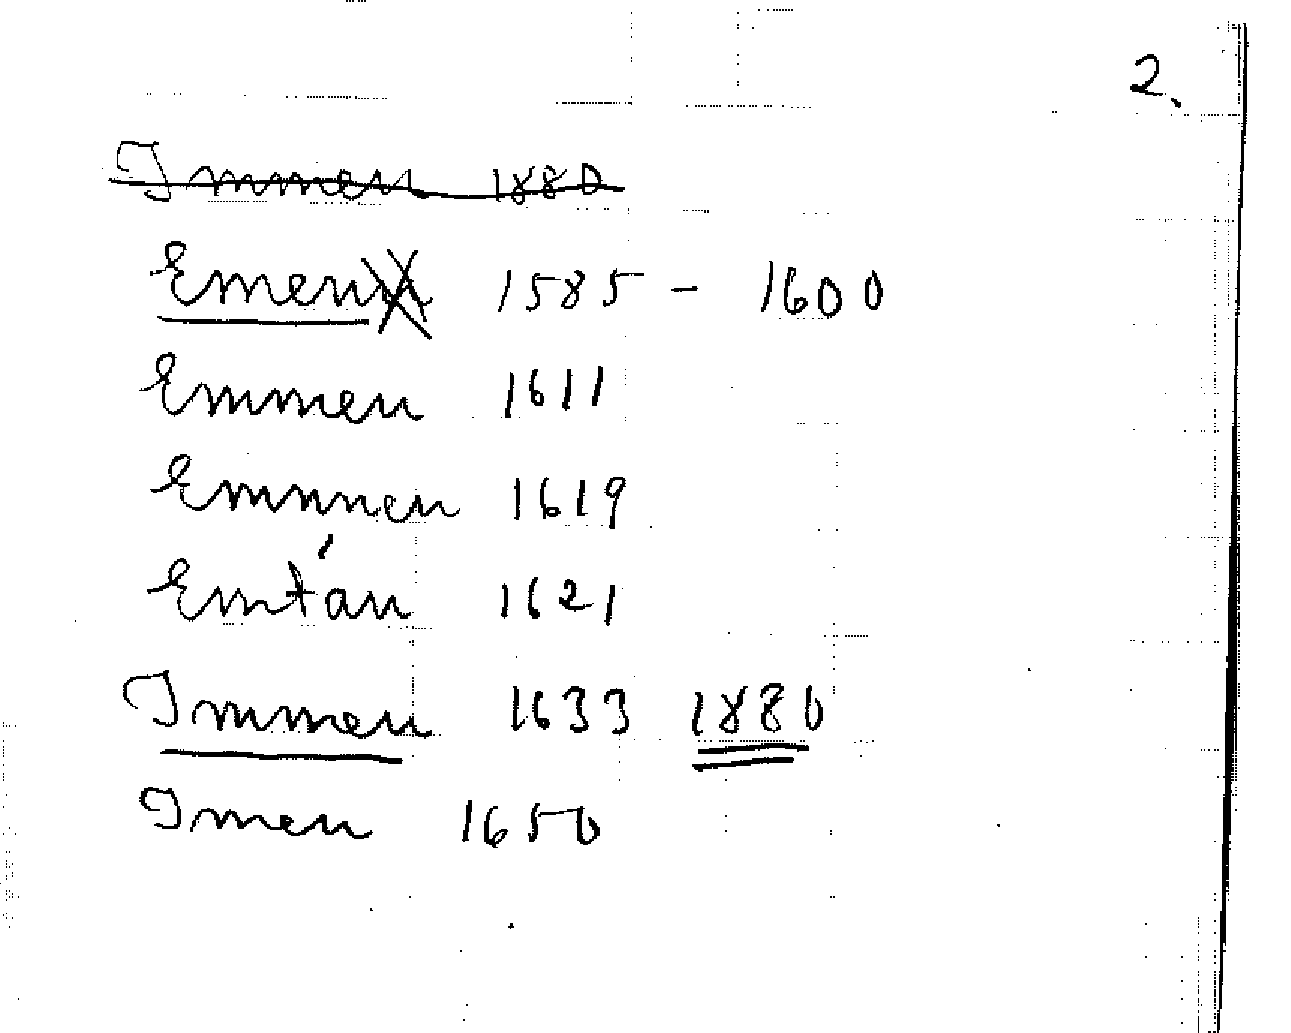 2.
Immen 1880
Emen 1585 - 1600
Emmen 1611
Emmnen 1619
Emtán 1621
Immen 1633 1880
Imen 1650